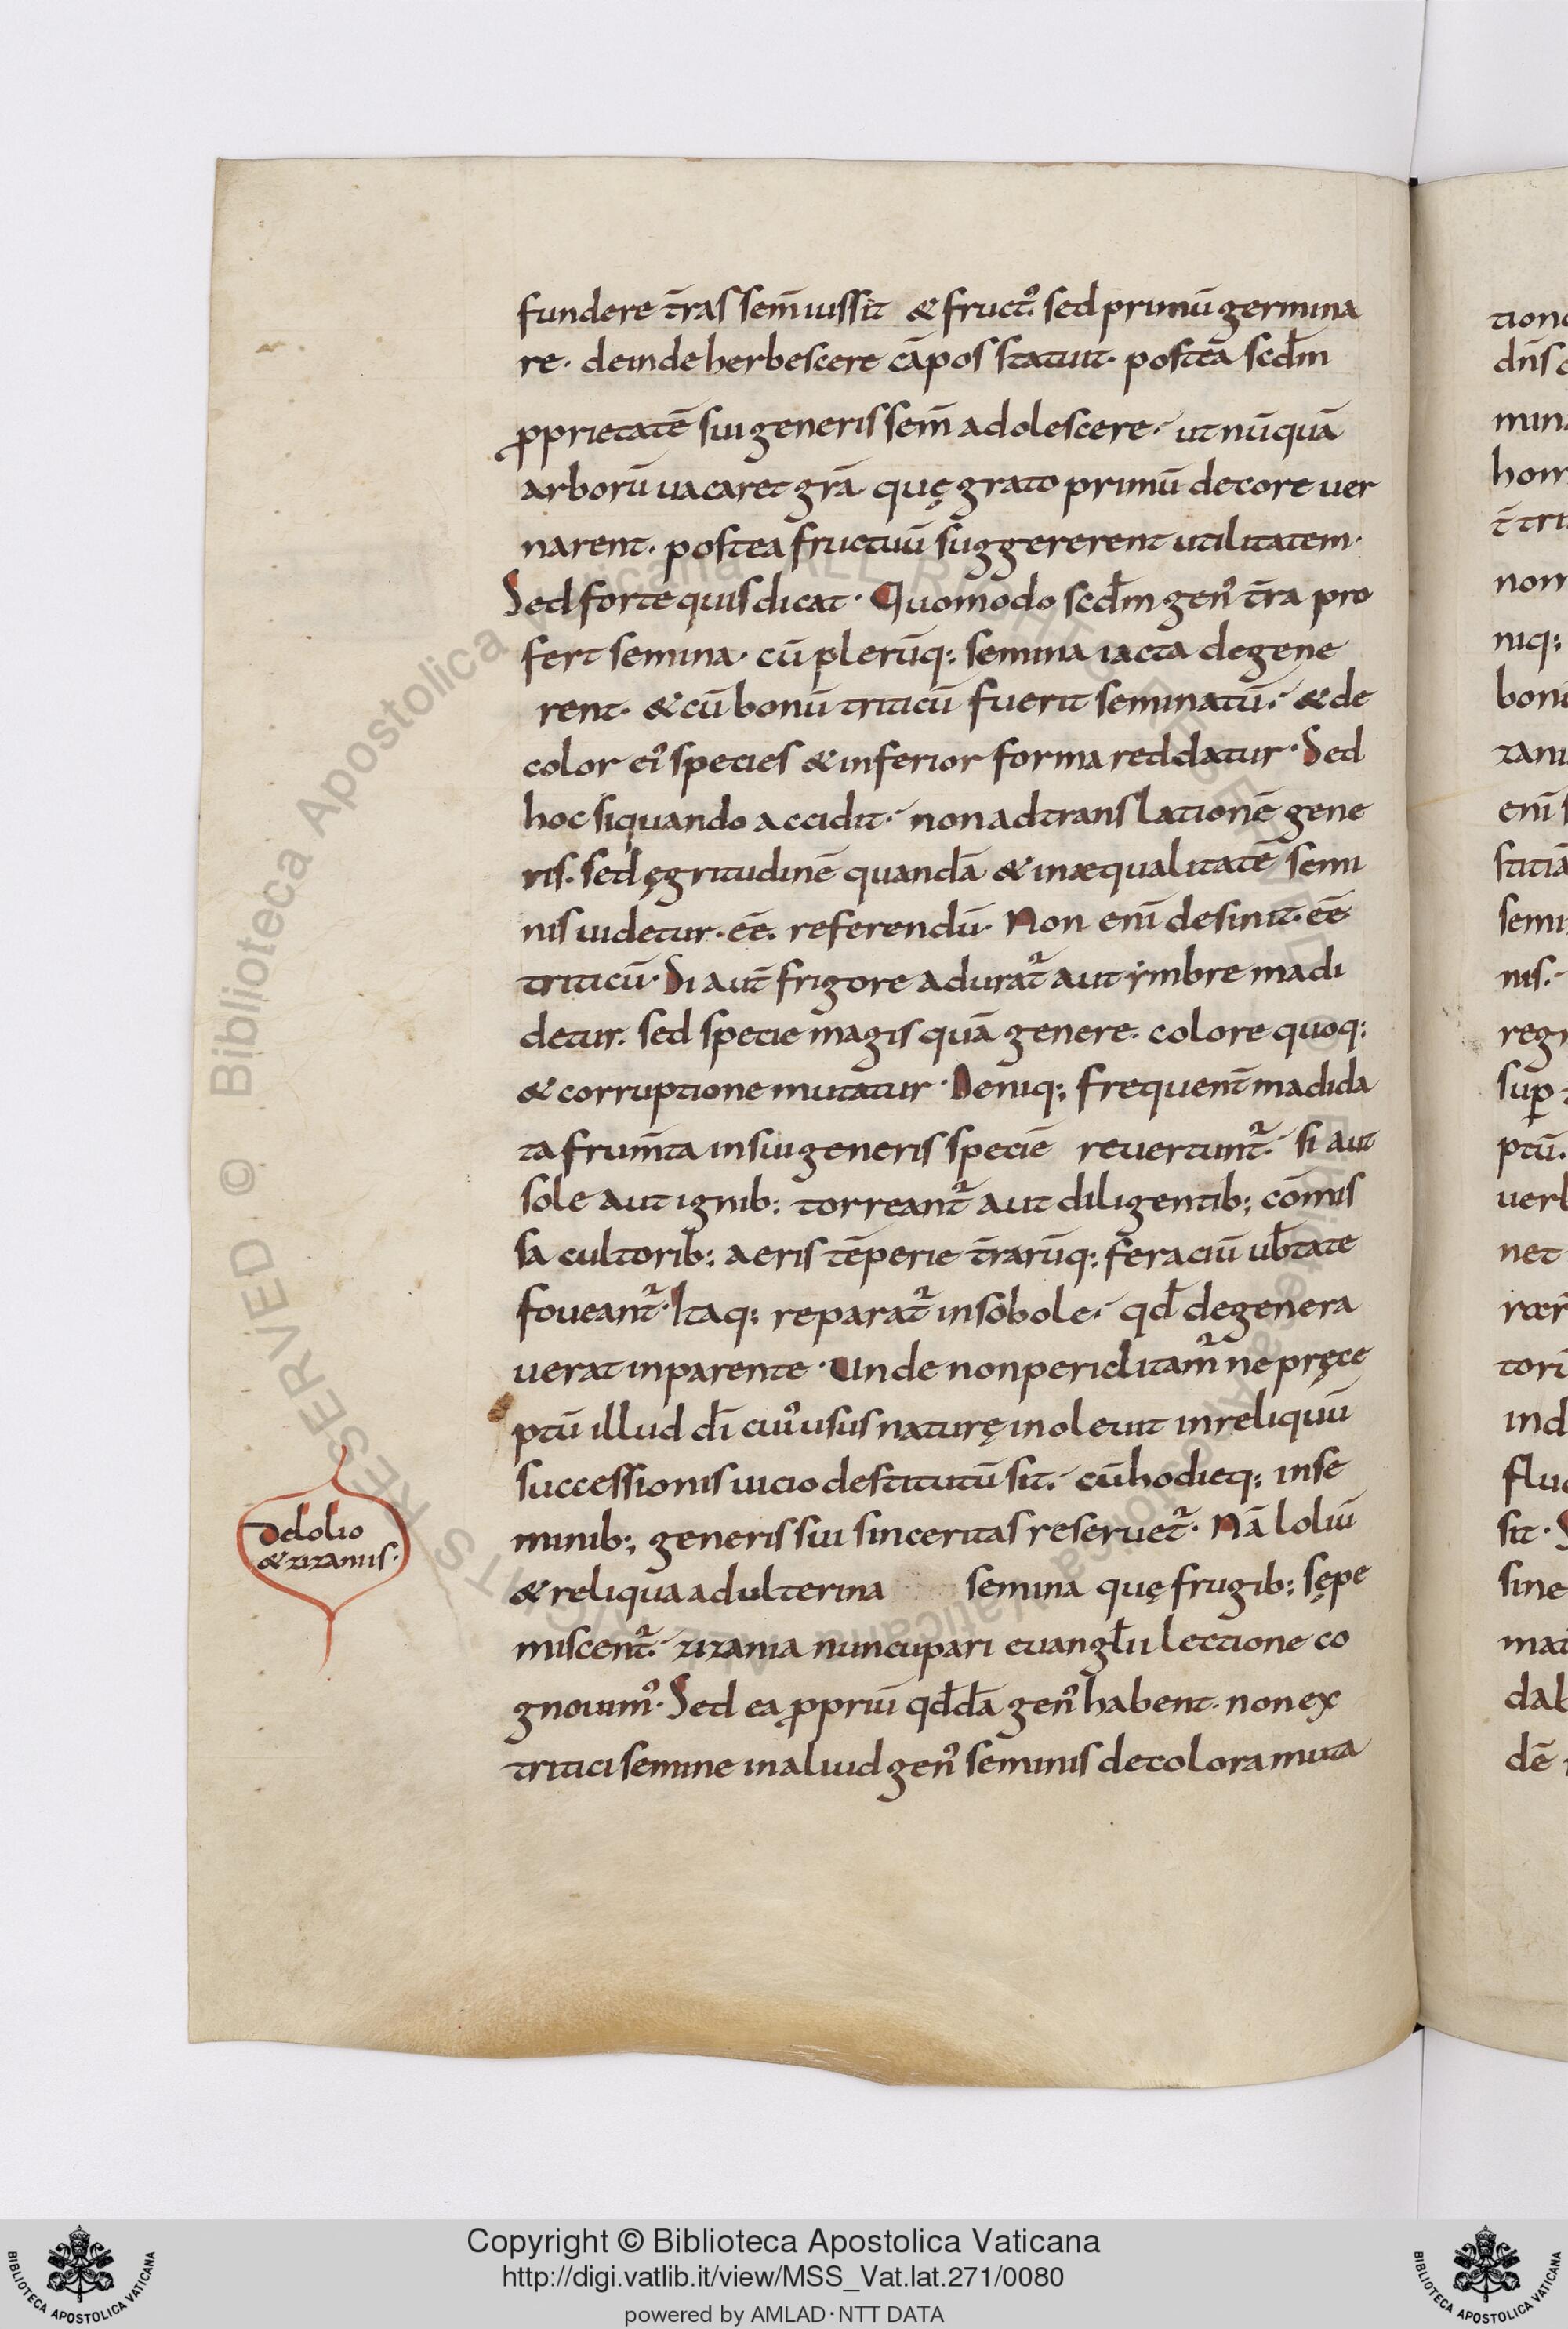 fundere t̄ras sem̄ iussit & fruct᾽. sed primū germina
re. deinde herbescere cāpos statuit. postea scd̄m
ꝓprietatē sui generis sem̄ adolescere. ut nūquā
arborū uacaret grā. quę grato primū decore uer
narent. postea fructuū suggererent utilitatem.
Sed forte quis dicat. Quomodo scd̄m gen᾽ t̄ra pro
fert semina. cū plerūq; semina iacta degene
rent. & cū bonū triticū fuerit seminatū. & de
color ei᾽ species & inferior forma reddatur. Sed
hoc siquando accidit. non ad translationē gene
ris. sed ęgritudinē quandā & inæqualitatē semi
nis uidetur. eē. referendū. Non enī desinit. eē
triticū. Si aut̄ frigore adurat᷑ aut ymbre madi
detur. sed specie magis quā genere. colore quoq;
& corruptione mutatur. Deniq; frequent̄ madida
ta frum̄ta in sui generis speciē reuertunt᷑. si aut
sole aut ignib; torreant᷑ aut diligentib; cōmis
sa cultorib; aeris tēperie t̄rarūq; feraciū ub̄tate
foueant᷑. Itaq; reparat᷑ in sobole. qd̄ degenera
uerat in parente. Unde non periclitam᷑ ne pręce
ptū illud dī cui᾽ usus naturę inoleuit in reliquū
successionis uicio destitutū sit. cū hodieq; in se
minib; generis sui sinceritas reseruet᷑. Nā loliū
& reliqua adulterina semina quę frugib; sępe
miscent᷑. zizania nuncupari euangl̄ii lectione co
gnouim᾽. Sed ea ꝓpriū qd̄dā gen᾽ habent. non ex
tritici semine in aliud gen᾽ seminis decolora muta
de lolio
& zizaniis.
tion
dn̄s
min
hom
t̄ tri
nom
niq;
bonū
zani
enī s
stitiā
semi
nis.
regn
sup
ptū.
uerb
net
tori
ind
fluc
sit. S
sine
mat
dab
dē
© Biblioteca Apostolica Vaticana ALL RIGHTS RESERVED
Copyright © Biblioteca Apostolica Vaticana
http://digi.vatlib.it/view/MSS_Vat.lat.271/0080
powered by AMLAD·NTT DATA
BIBLIOTECA APOSTOLICA VATICANA
BIBLIOTECA APOSTOLICA VATICANA